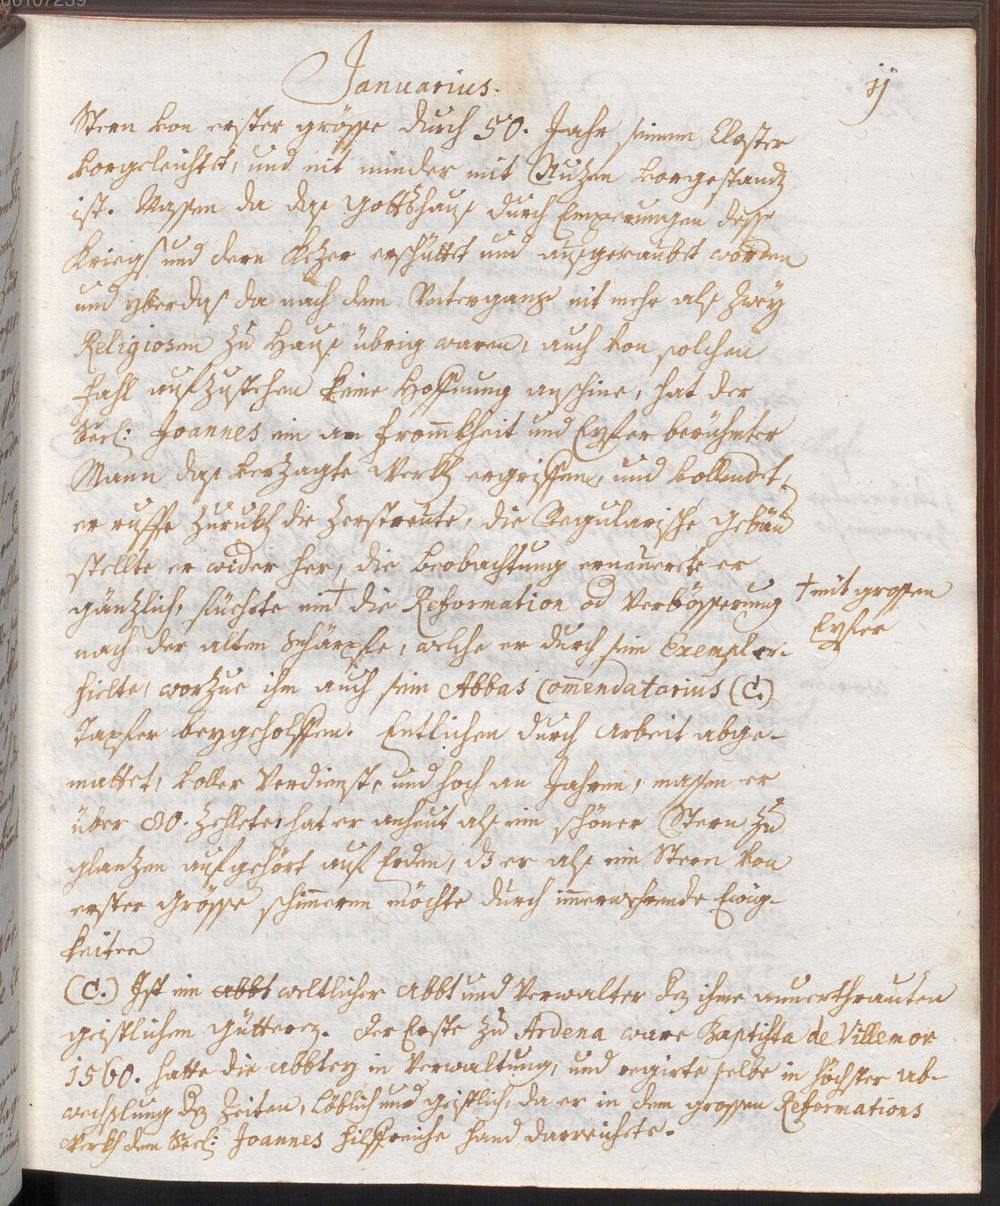 00107239
Januarius. 11
Stern von erster grösse durch 50. Jahr seinem Closter
vorgeleichtet, und nit minder mit Nutzen vorgestandt
ist. Massen da das Gottshaus durch Emperungen dess
Kriegs und dern Ketzer erschüttet und aussgeraubet worden
und yberdas da nach dem Untergang nit mehr als zwey
Religiosen zu Hause übrig waren, auch von solchen
fahl aufzustehen keine Hoffnung anschine, hat der
Seel: Joannes ein an frommkheit und Eyfer berühmter
Mann das verzagte Werkh ergriffen, und vollendet,
er ruffte zurukh die Zerstreute, die Regularische gebäu
stellte er wider her, die beobachtung erneuerete er
gäntzlich, führte ein † die Reformation od Verbösserung
† mit grossen
Eyfer
nach der alten Schärpfe, welche er durch sein Exempl er-
hielte, worzue ihm auch sein Abbas Commendatarius (C.)
Tapfer beygeholffen. Entlichen durch Arbeit abge-
mattet, voller Verdienst, und hoch an Jahren, massen er
über 80. zehlete, hat er anheut als ein schöner Stern zu
glantzen aufgehört auf Erden, dz er als ein Stern von
erster Grösse schimmern möchte durch immerwehrende Ewig-
keiten
(C.) Ist ein abbt weltlicher Abbt und Verwalter dez ihme anverthrauten
geistlichen Gütterez. Der Erste zu Ardena ware Baptista de Villemor
1560. hatte die Abbtey in Verwaltung, und regirte selbe in höchster Ab-
wechslung dez Zeiten, löblich und geistlich, da er in dem grossen Reformations
Werkh dem Seel: Joannes hilffreiche hand darreichete.